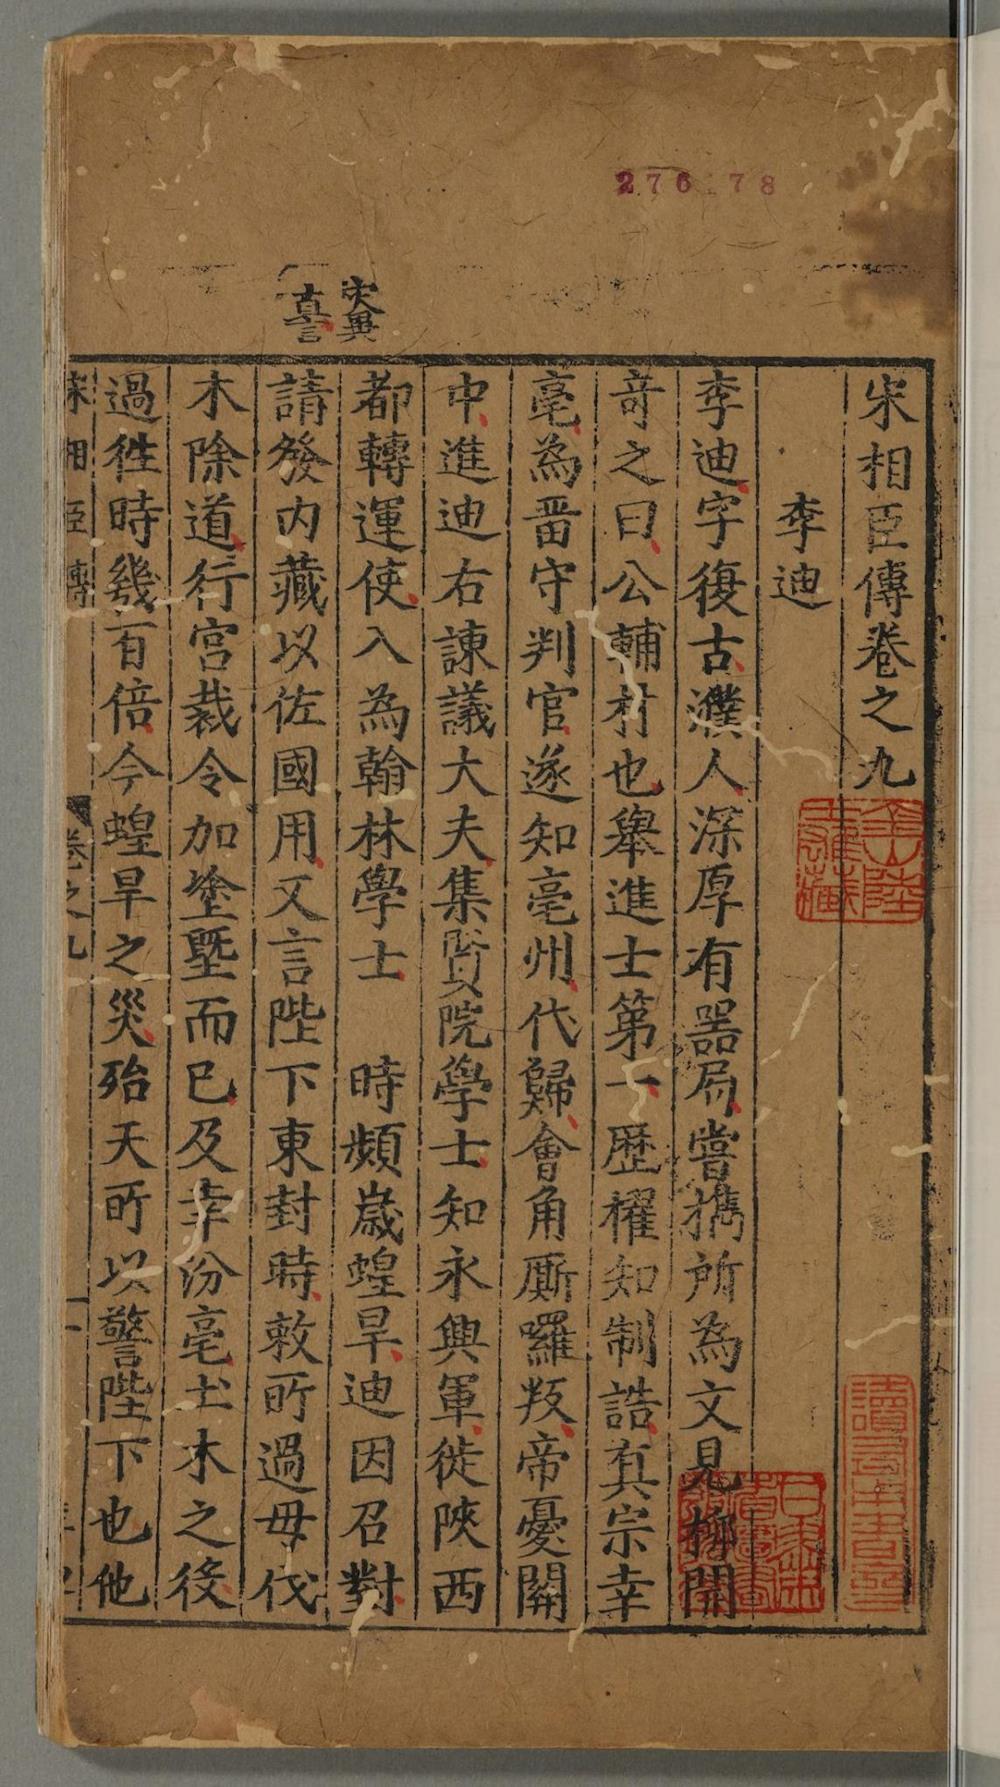 276 78
災異
真言
宋相臣傳卷之九
李迪
李迪字復古濮人深厚有噐局嘗擕所為文見柳開
竒之曰公輔材也舉進士第一歷擢知制誥真宗幸
亳為畱守判官遂知亳州代歸會角厮囉叛帝憂關
中進迪右諫議大夫集賢院學士知永興軍徙陝西
都轉運使入為翰林學士 時頻歲蝗旱迪因召對
請發内藏以佐國用又言陛下東封時敕所過毋伐
木除道行宮裁令加塗塈而已及幸汾亳土木之役
過徃時幾百倍今蝗旱之災殆天所以警陛下也他
宋相臣傳
卷之九